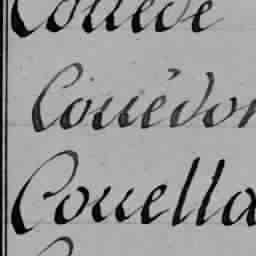 Couëde
Couëdor
Couella